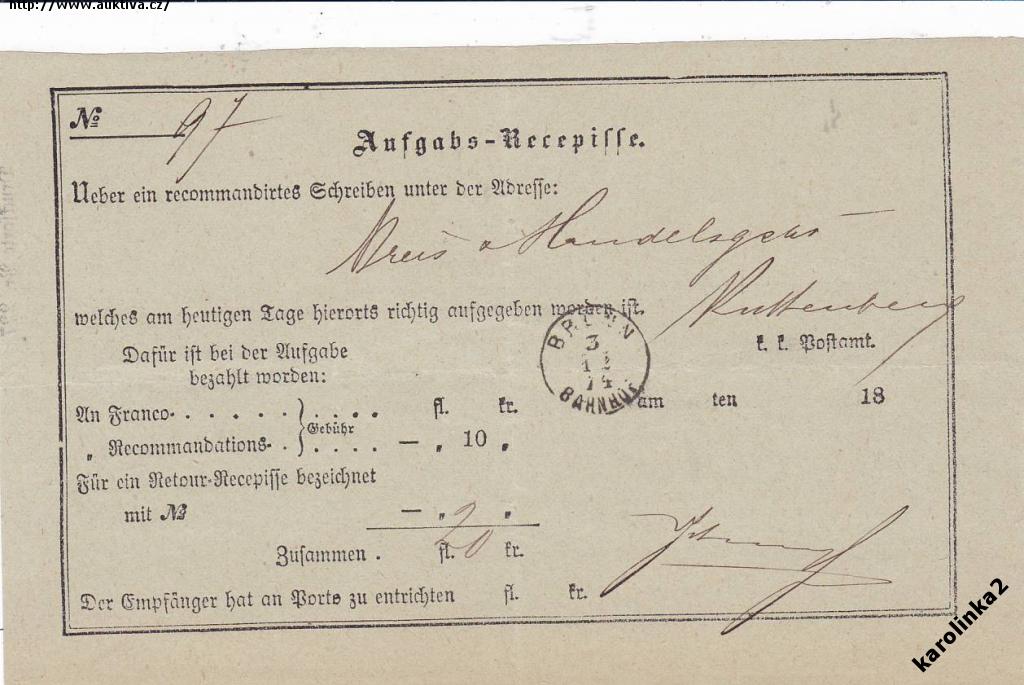 http://www.auktiva.cz/
№ 97
Aufgabs-Recepisse.
Ueber ein recommandirtes Schreiben unter der Adresse:
Handelsgeba
welches am heutigen Tage hierorts richtig aufgegeben worden ist.
Kuttenberg
k. k. Postamt.
BRÜNN
3
12
74
BAHNHOF
Dafür ist bei der Aufgabe
bezahlt worden:
An Franco . . . . . . } . . . . fl. kr.
Gebühr
„ Recommandations- . } . . . . — „ 10 „
am ten 18
Für ein Retour-Recepisse bezeichnet
mit № — „ „
Zusammen . fl. 20 kr.
Der Empfänger hat an Porto zu entrichten fl. kr.
karolinka2